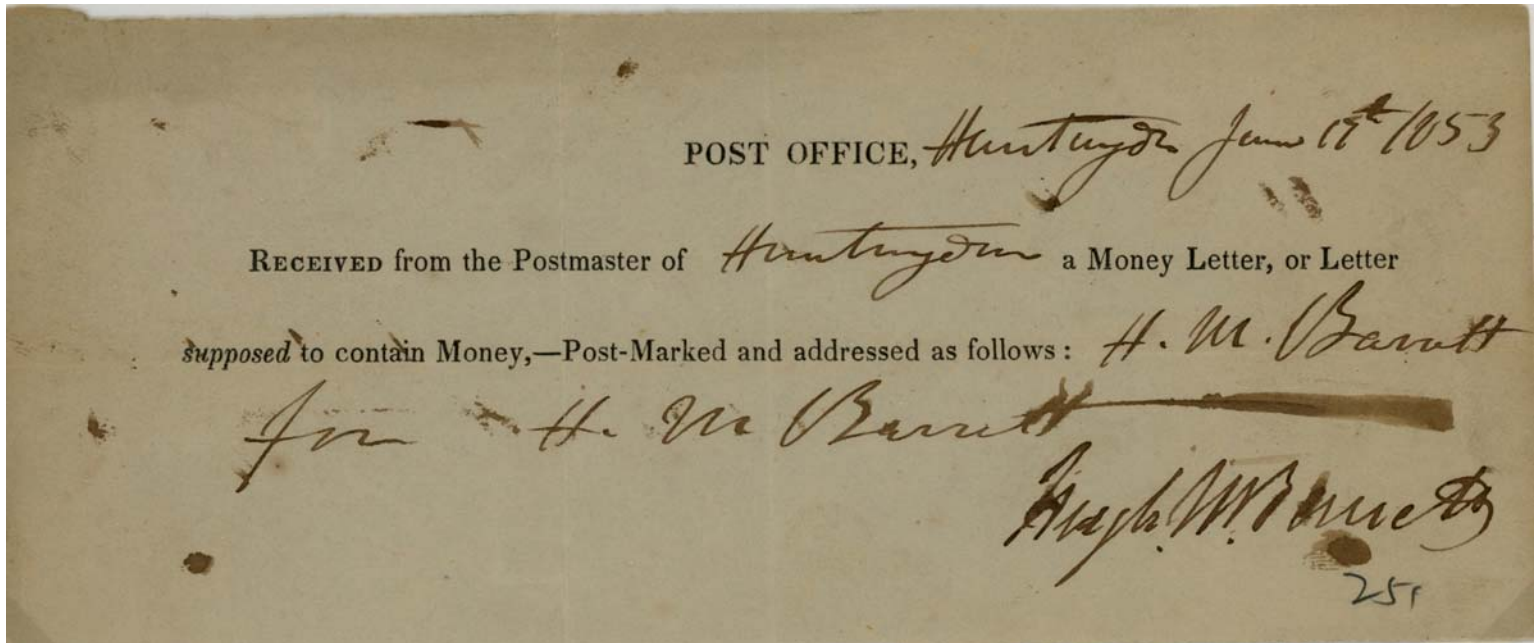 POST OFFICE, Huntingdon June 17th 1853
RECEIVED from the Postmaster of Huntingdon a Money Letter, or Letter
supposed to contain Money,—Post-Marked and addressed as follows: H. M. Barrett
for H. M Barrett
Hugh. M. Barrett
251